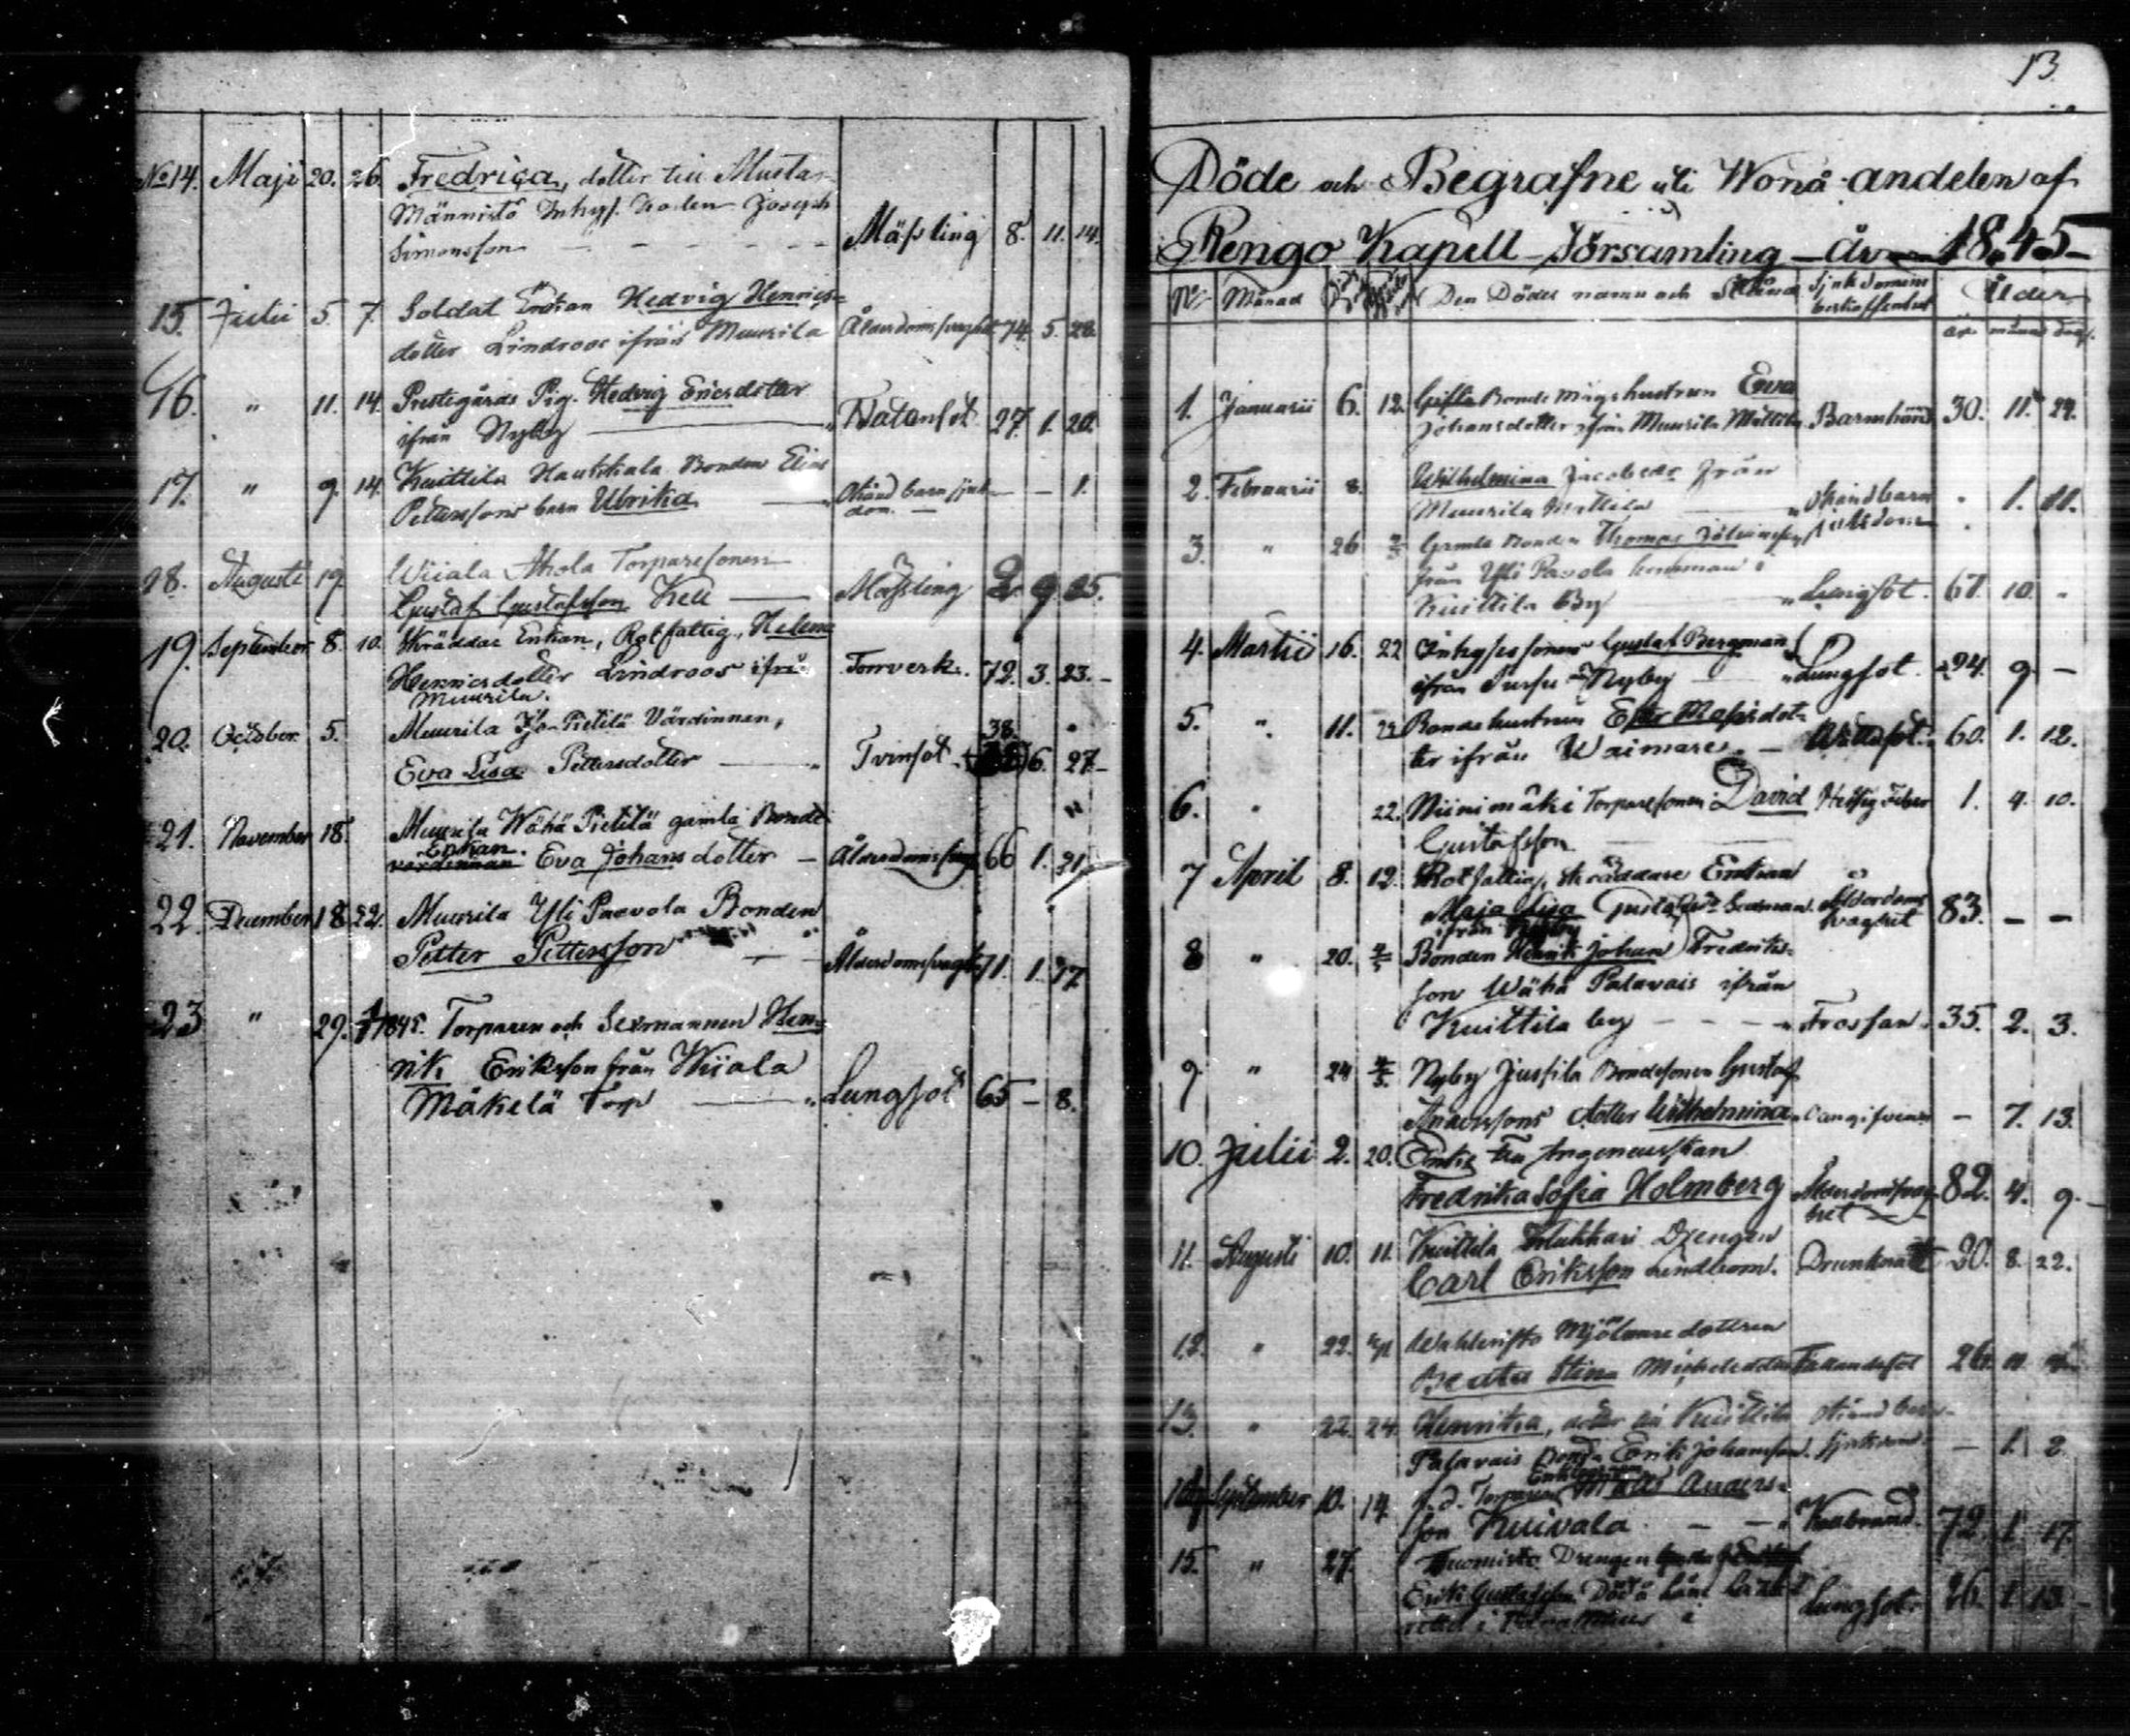 No 14. Maji 20. 26. Fredrica, dotter till Mustar
Männistö Inhys. Joseph
Simonsson - - - - - Mässling 8. 11. 14.
15. Julii 5. 7. Soldat Enkan Hedvig Henrics-
dotter Lindroos ifrån Muurila Ålderdomssvaghet 74. 5. 28.
16. " 11. 14. Prestegårds Pig. Hedvig Ericsdotter
ifrån Nyby Watensot 27. 1. 20.
17. " 9. 14. Kuittila Haukkala Bonden Elias
Petterssons barn Ulrika Okänd barn sjuk-
dom. - - 1.
18. Augusti 19. Wiiala Ahola Torparesonen
Gustaf Gustafsson Kell Mässling 2. 9. 25.
19. September 8. 10. Skräddar Enkan, Rotfattig, Helena
Henricsdotter Lindroos ifrån Torrverk. 72. 3. 23.
Muurila.
20. October 5. Muurila Yjo Pietilä Värdinnan, 38.
Eva Lisa Pettersdotter Tvinsot 6. 27.
21. November 18. Muurila Wähä Pietilä gamla Bonde
Enkan.
värdinnan Eva Johansdotter - Ålderdomssvag 66 1. 21
22. December 18. 22. Muurila Yli Paavola Bonden
Petter Pettersson Ålderdomssvagh. 71. 1. 27
23 " 29. 1845. Torparen och Sexmannen Hen-
rik Eriksson från Wiiala
Mäkelä Torp Lungsot 65 - 8.
13.
Döde och Begrafne uti Wonå andelen af
Rengo Kapell-Församling - År 1845 -
No Månad Den Dödes namn och Stånd Sjukdomens beskaffenhet Ålder
år månad dag.
1. Januarii 6. 12. Gifta Bonde mågs hustrun Eva
Johansdotter ifrån Muurila Mattila Barnsbörd 30. 11. 29.
2. Februarii 8. Wilhelmina Jacobsdr från
Muurila Mattila Okänd barn . 1. 11.
sjukdom
3. " 26 2/3 Gamla Bonden Thomas Johansson
från Yli Pavola hemman i
Kuittila By Lungsot. 67. 10. "
4. Martii 16. 22 Inhysessonen Gustaf Bergman
ifrån Nyby Lungsot. 24. 9. -
5. " 11. 24 Bondehustrun Ester Matsdot-
ter ifrån Waimare. - 60. 1. 12.
6. " 22. Niinimäki Torparesonen David Hetsig feber 1. 4. 10.
Gustafsson
7 April 8. 12. Rotfattig, Skräddare Enkan
Maja Lisa Gustafsdr Ålderdoms
svaghet 83. - -
ifrån Nyby
8 " 20. 4/5 Bonden Henrik Johan Fredriks-
son Wähä Palavais ifrån
Kuittila by - - - " Frossan. 35. 2. 3.
9 " 24 4/5. Nyby Jussila Bondesonen Gustaf
Anderssons dotter Wilhelmina - 7. 13.
10. Julii 2. 20. Enke Fru
Fredrika Sofia Holmberg Ålderdomssvag-
het 82. 4. 9.
11. Augusti 10. 11. Kuittila Drengen
Carl Eriksson Lindbom. Drunknat 30. 8. 22.
12. " 22. Mjölnare dottren
Beata Stina Michelsdotter Fallandesot 26.
13. " 22. 24. Henrika, dotter till Kuittila Okänd barn-
Palavais Bond. Erik Johansson. sjukdom - 1. 2.
14 September 10. 14. f.d. Torparen Enklingen Matts Anders-
son Kuivala - - " Kallbrand. 72. 1. 17.
15. " 27. Tuomisto Drengen
Erik Gustafsson. Död å Läne
i Tavastehus Lungsot 26. 1. 13.